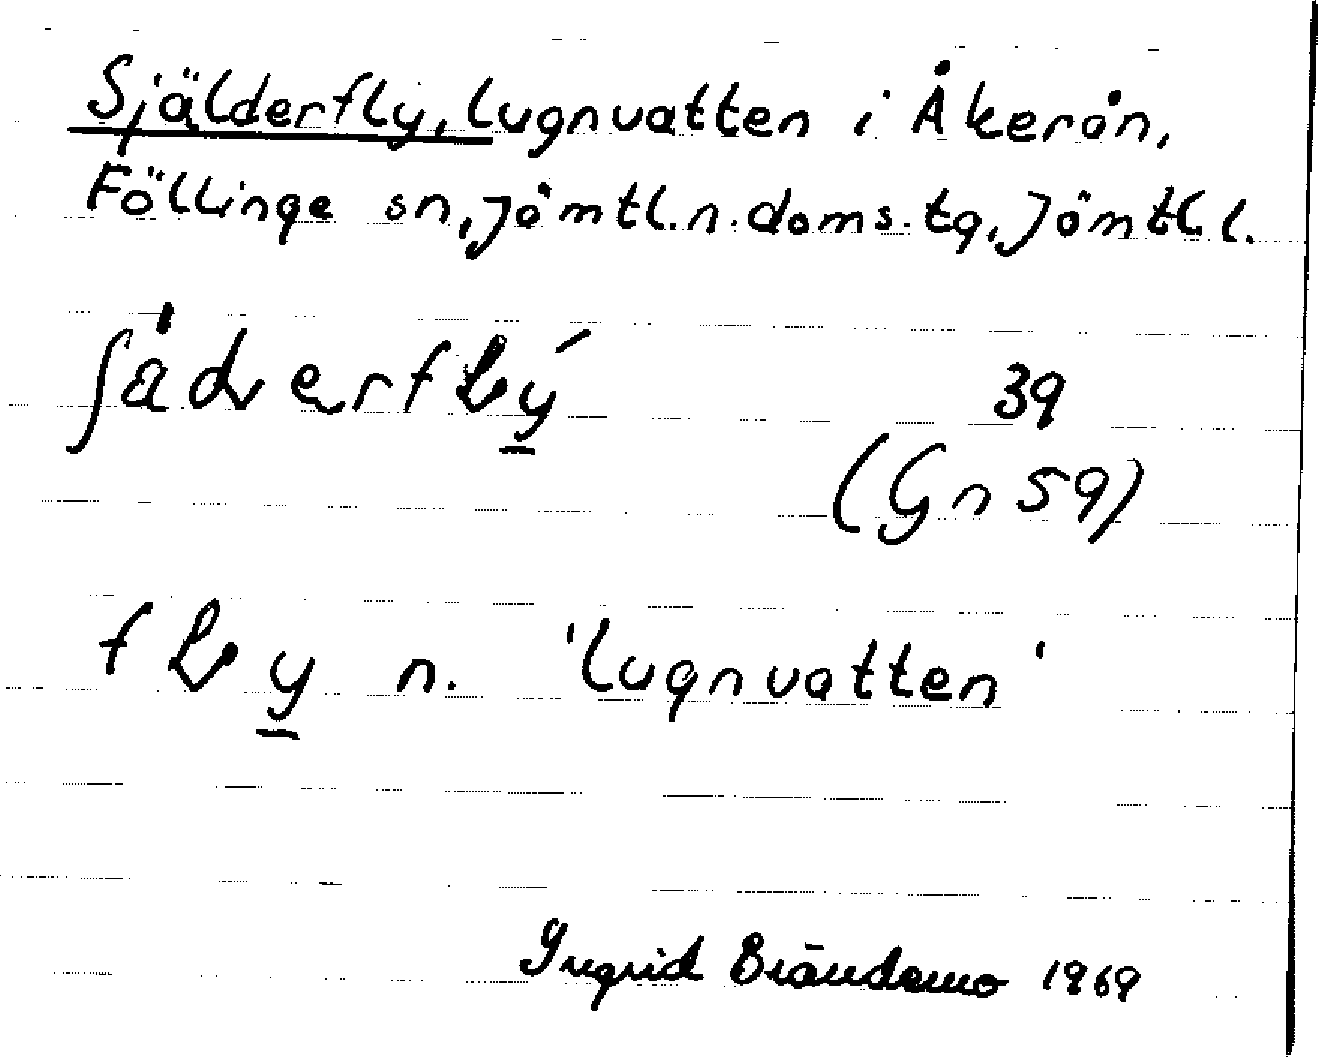 Själderfly, lugnvatten i Åkerån,
Föllinge sn, Jämtl. n. doms. tg, Jämtl. l.
39
(Gn 59)
n. 'lugnvatten'
Ingrid Brändemo 1969